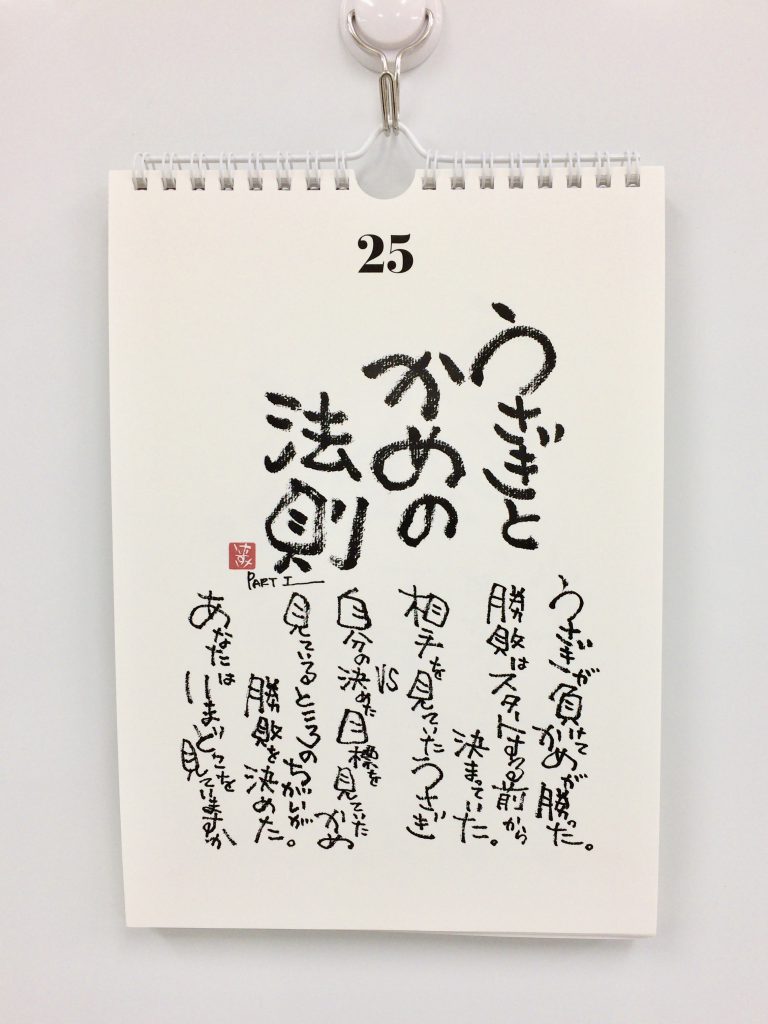 25
うさぎと
かめの
法則
PART I
うさぎが負けてかめが勝った。
勝敗はスタートする前から
決まっていた。
相手を見ていたうさぎ
VS
自分の決めた目標を見ていたかめ
見ているところのちがいが
勝敗を決めた。
あなたはいまどこを見ていますか